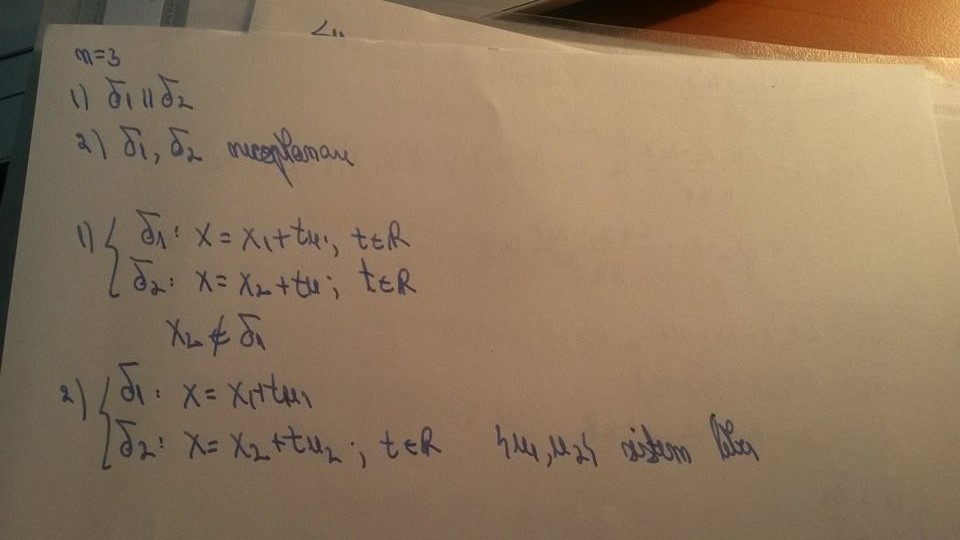 n=3
1) δ1 || δ2
2) δ1, δ2 necoplanare
1) { δ1: x = x1 + tu; t∈R
δ2: x = x2 + tu; t∈R
x2 ∉ δ1
2) { δ1: x = x1 + tu1
δ2: x = x2 + tu2; t∈R {u1, u2} sistem liber